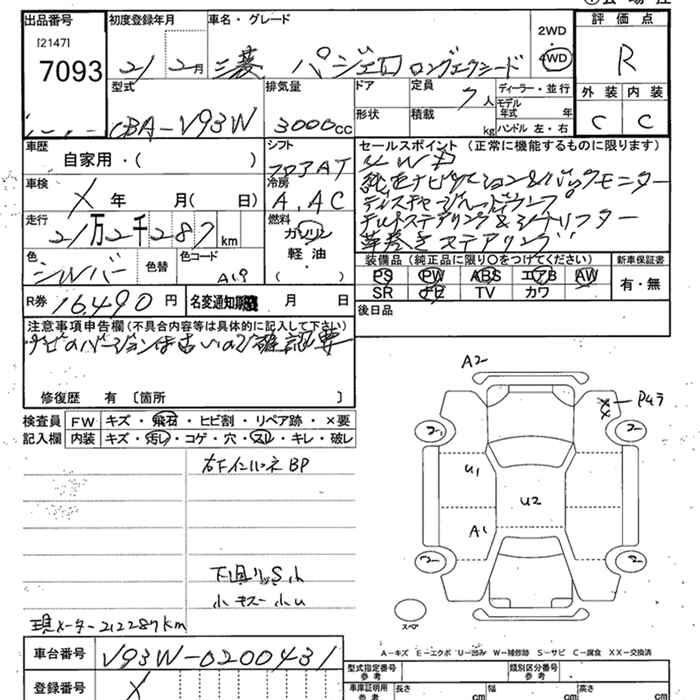 出品番号 初度登録年月 車名・グレード 2WD 評価点
[2147]
7093 21 2月 三菱 パジェロ ロングエクシード 4WD R
型式 排気量 ドア 定員 7人 ディーラー・並行 外装 内装
モデル年式 年
CBA-V93W 3000cc 形状 積載 kg ハンドル 左・右 C C
車歴 シフト セールスポイント(正常に機能するものに限ります)
自家用・( ) フロアAT 4WD
車検 冷房 純正ナビゲーション&バックモニター
X 年 月( 日) A.AC ディスチャージヘッドランプ
走行 燃料 チルトステアリング&シートリフター
21万2千287km ガソリン 革巻きステアリング
色 色替 色コード 軽油・ 装備品(純正品に限り○をつけてください) 新車保証書
シルバー A19 ( ) PS PW ABS エアB AW 有・無
R券 16,490円 名変通知期限 月 日 SR TV カワ
注意事項申告欄(不具合内容等は具体的に記入して下さい) 後日品
ナビのバージョンは古いので確認要
修復歴 有〔箇所 〕
検査員 FW キズ・飛石・ヒビ割・リペア跡・×要
記入欄 内装 キズ・汚レ・コゲ・穴・スレ・キレ・破レ
A2
P4ラ
U1
U2
A1
スペア
下廻りS小
小キズ 小U
現メーター212287km
車台番号 V93W-0200431
A-キズ E-エクボ U-凹み W-補修跡 S-サビ C-腐食 XX-交換済
登録番号 X
型式指定番号 参考 類別区分番号 参考
車庫証明用 参考 長さ cm 幅 cm 高さ cm